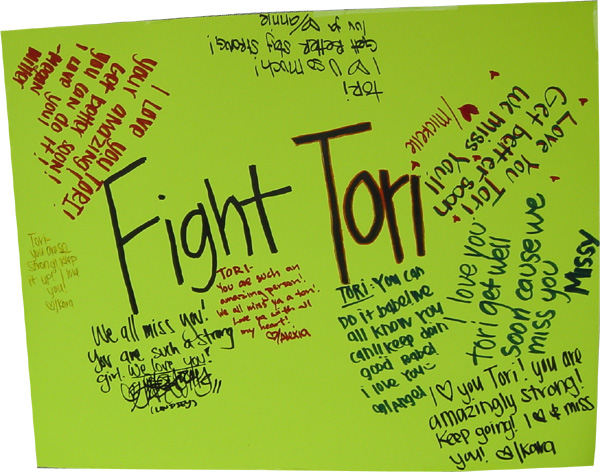 I LOVE YOU TORI!
your amazing!
Get better soon!
you can do it!
I Love you!
-Megan
Miller
TORI
I ♡ U so much!
Get Better Stay Strong!
luv ya ♡/annie
Love You Tori
Get better soon
We miss You!!
♡/mckenzie
Fight Tori
Tori-
you are so
strong! keep
it up! I love
you!
♡/kara
We all miss you!
You are such a strong
girl. We love you!
TORI-
You are such an
amazing person!
We all miss ya a ton!
Love ya with all
my heart!
♡/Alexia
TORI: You can
Do it babe! We
all know You
can!! keep doin
good Babe!
i love You
♡/Angel
I love you
tori get well
soon cause we
miss you
Missy
I ♡ you Tori! you are
amazingly strong!
Keep going! I ♡ & miss
you! ♡/kara